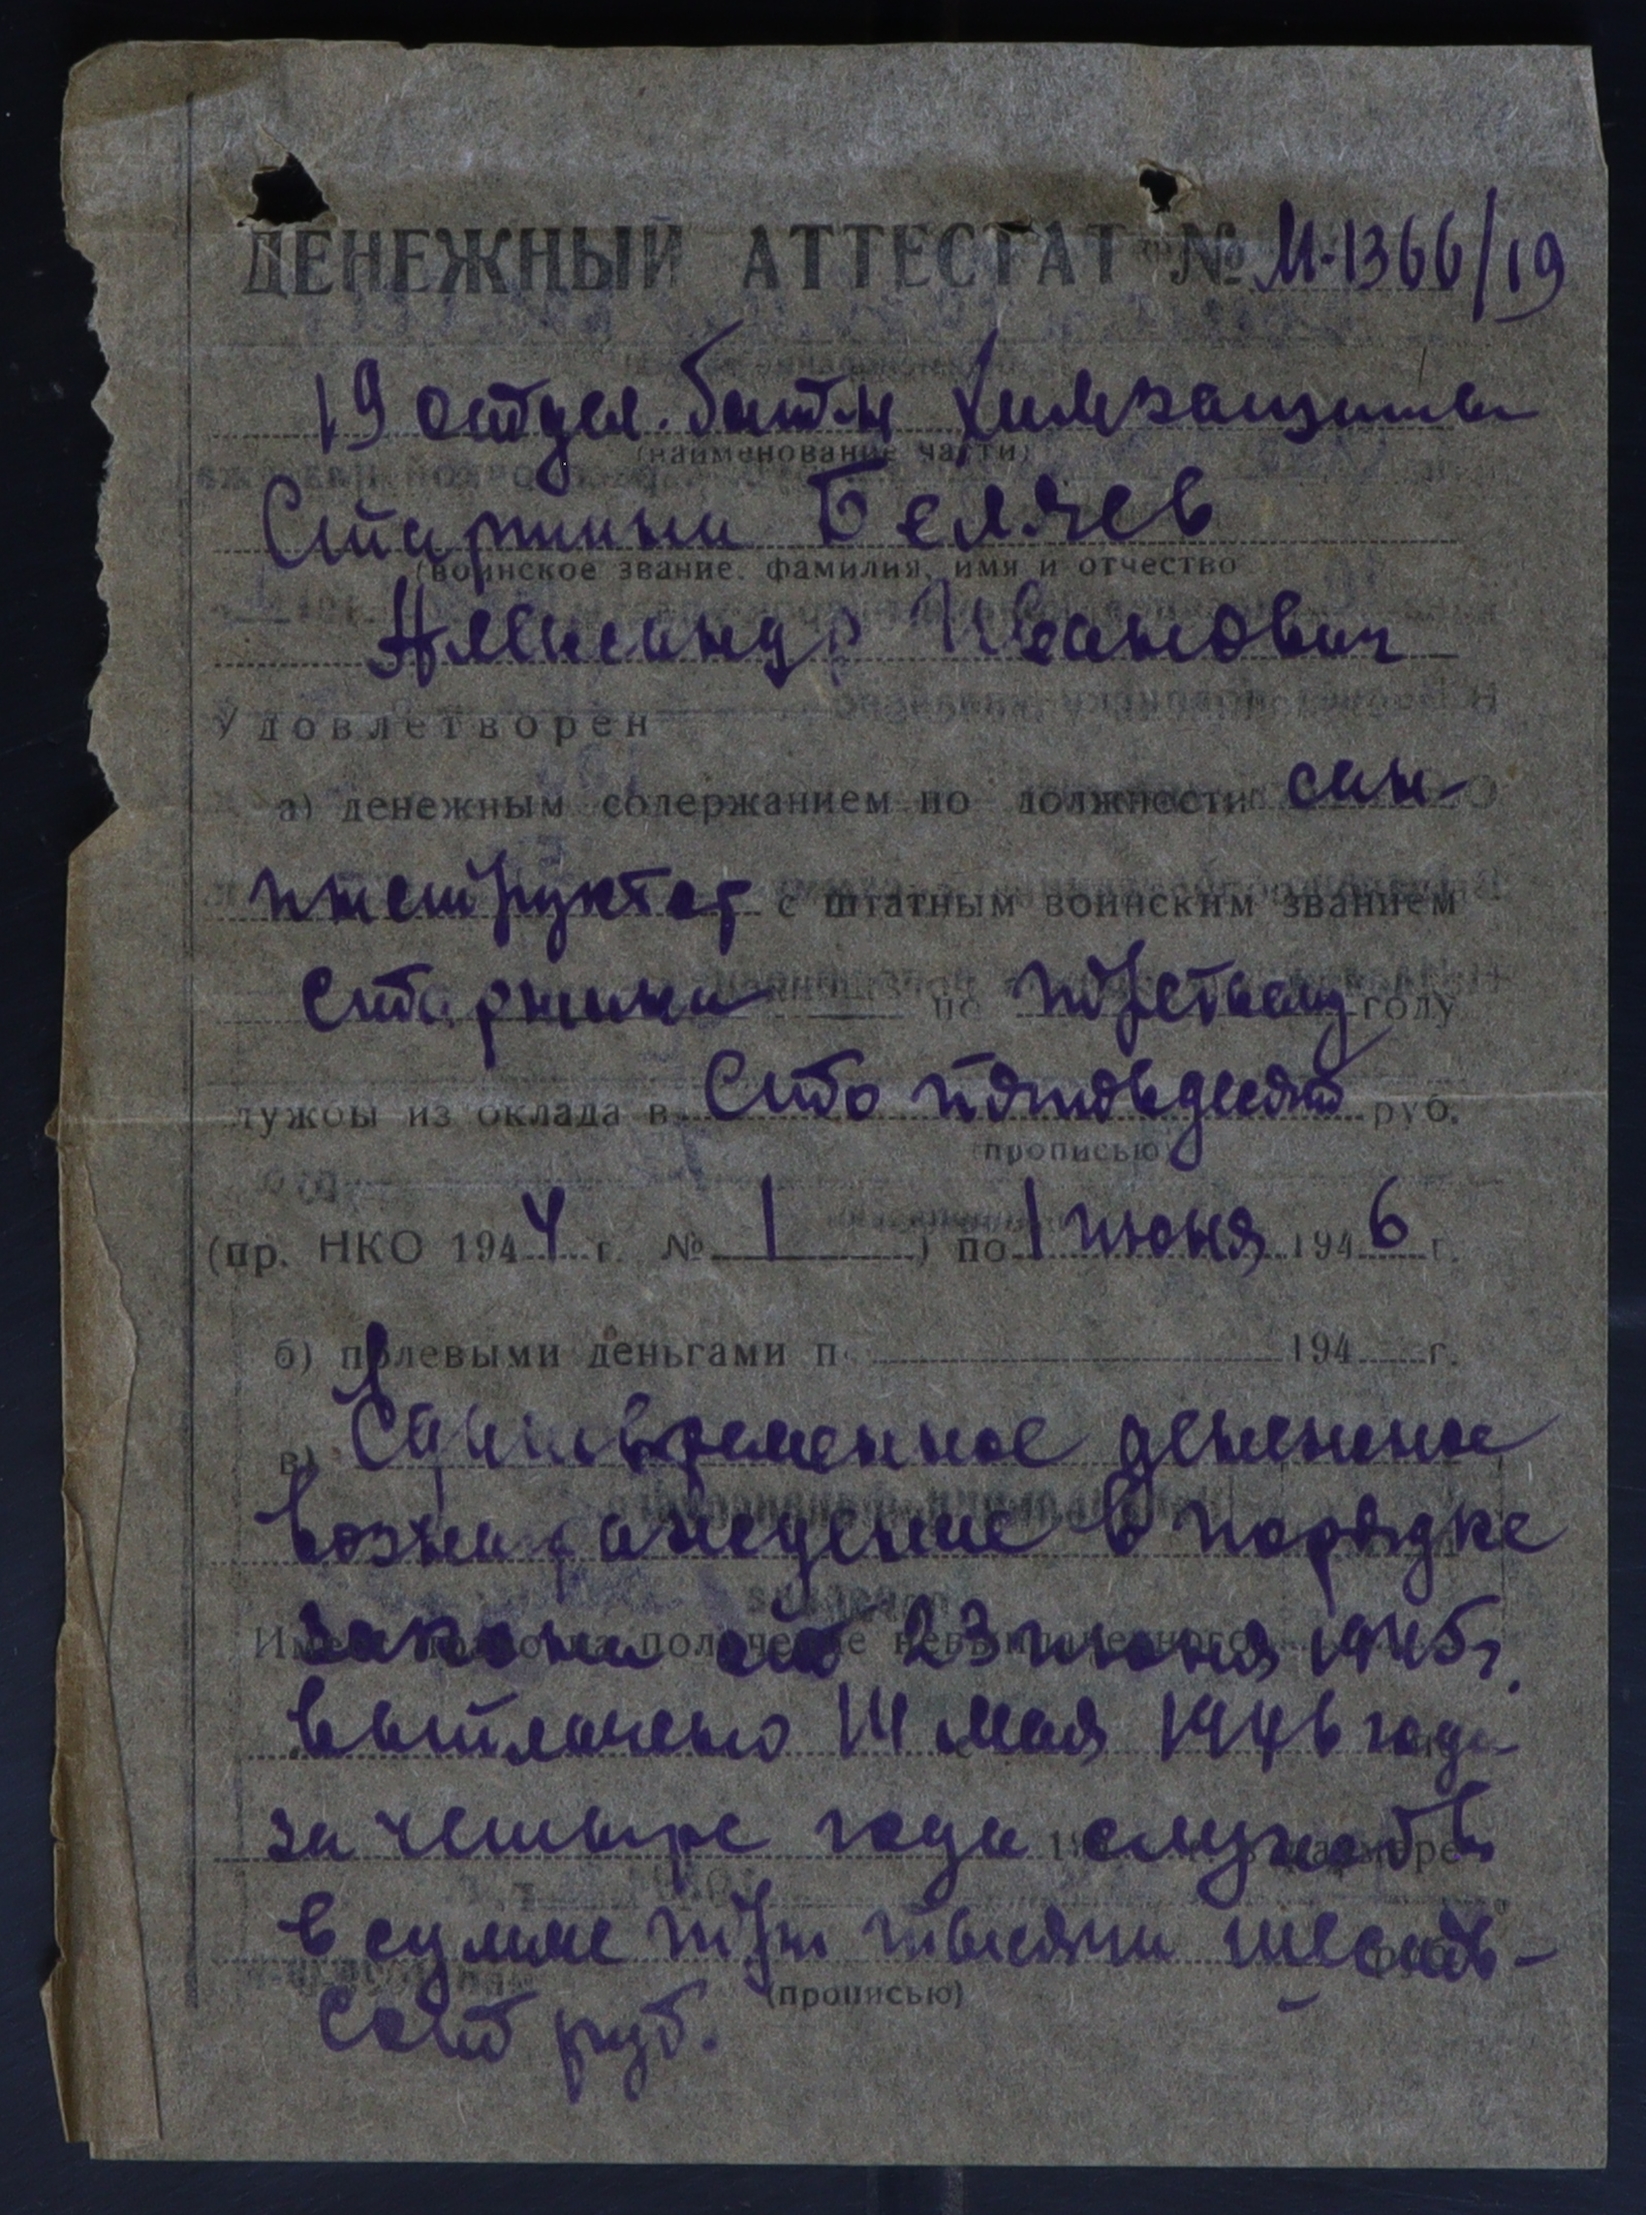 ДЕНЕЖНЫЙ АТТЕСТАТ № М-1366/19
19 отдел. бат-н Химзащиты
(наименование части)
Старшина Беляев
(воинское звание, фамилия, имя и отчество
Александр Иванович
Удовлетворен
а) денежным содержанием по должности сан-
инструктор с штатным воинским званием
старшина по третьему году
лужбы из оклада в Сто пятьдесят руб.
прописью
(пр. НКО 1944 г. № 1 ) по 1 июня 1946 г.
б) полевыми деньгами п 194 г.
в) Единовременное денежное
вознаграждение в порядке
закона от 23 июня 1945 г.
выплачено 14 мая 1946 года
за четыре года службы
в сумме три тысячи шесть-
(прописью)
сот руб.